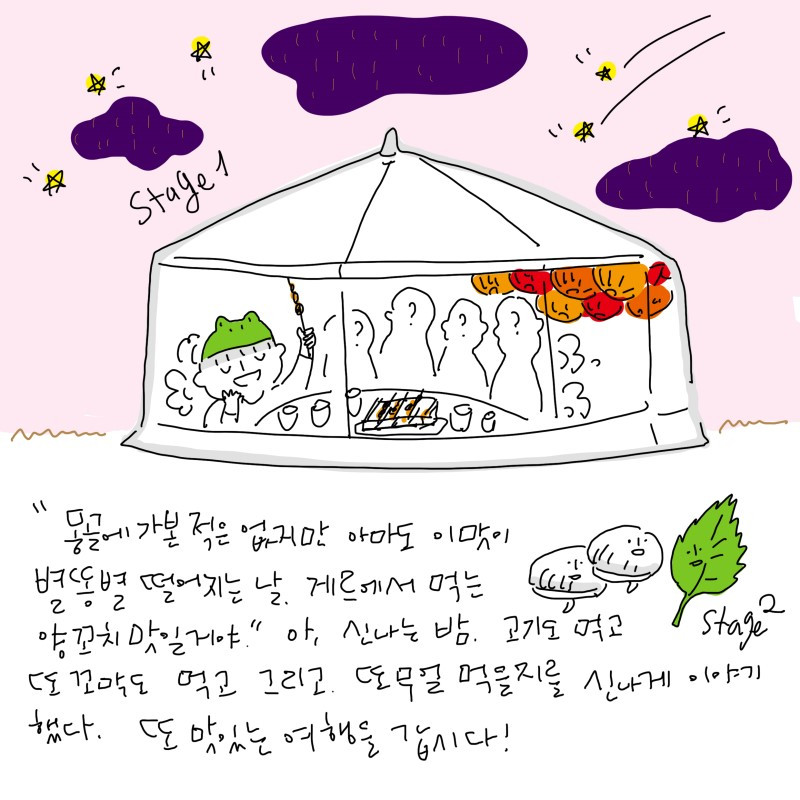 Stage 1
? ? ? ?
"몽골에 가본 적은 없지만 아마도 이맛이
별똥별 떨어지는 날. 게르에서 먹는
양꼬치 맛일거야." 아, 신나는 밤. 고기도 먹고
또 꼬막도 먹고 그리고. 또 무얼 먹을지를 신나게 이야기
했다. 또 맛있는 여행을 갑시다!
Stage 2